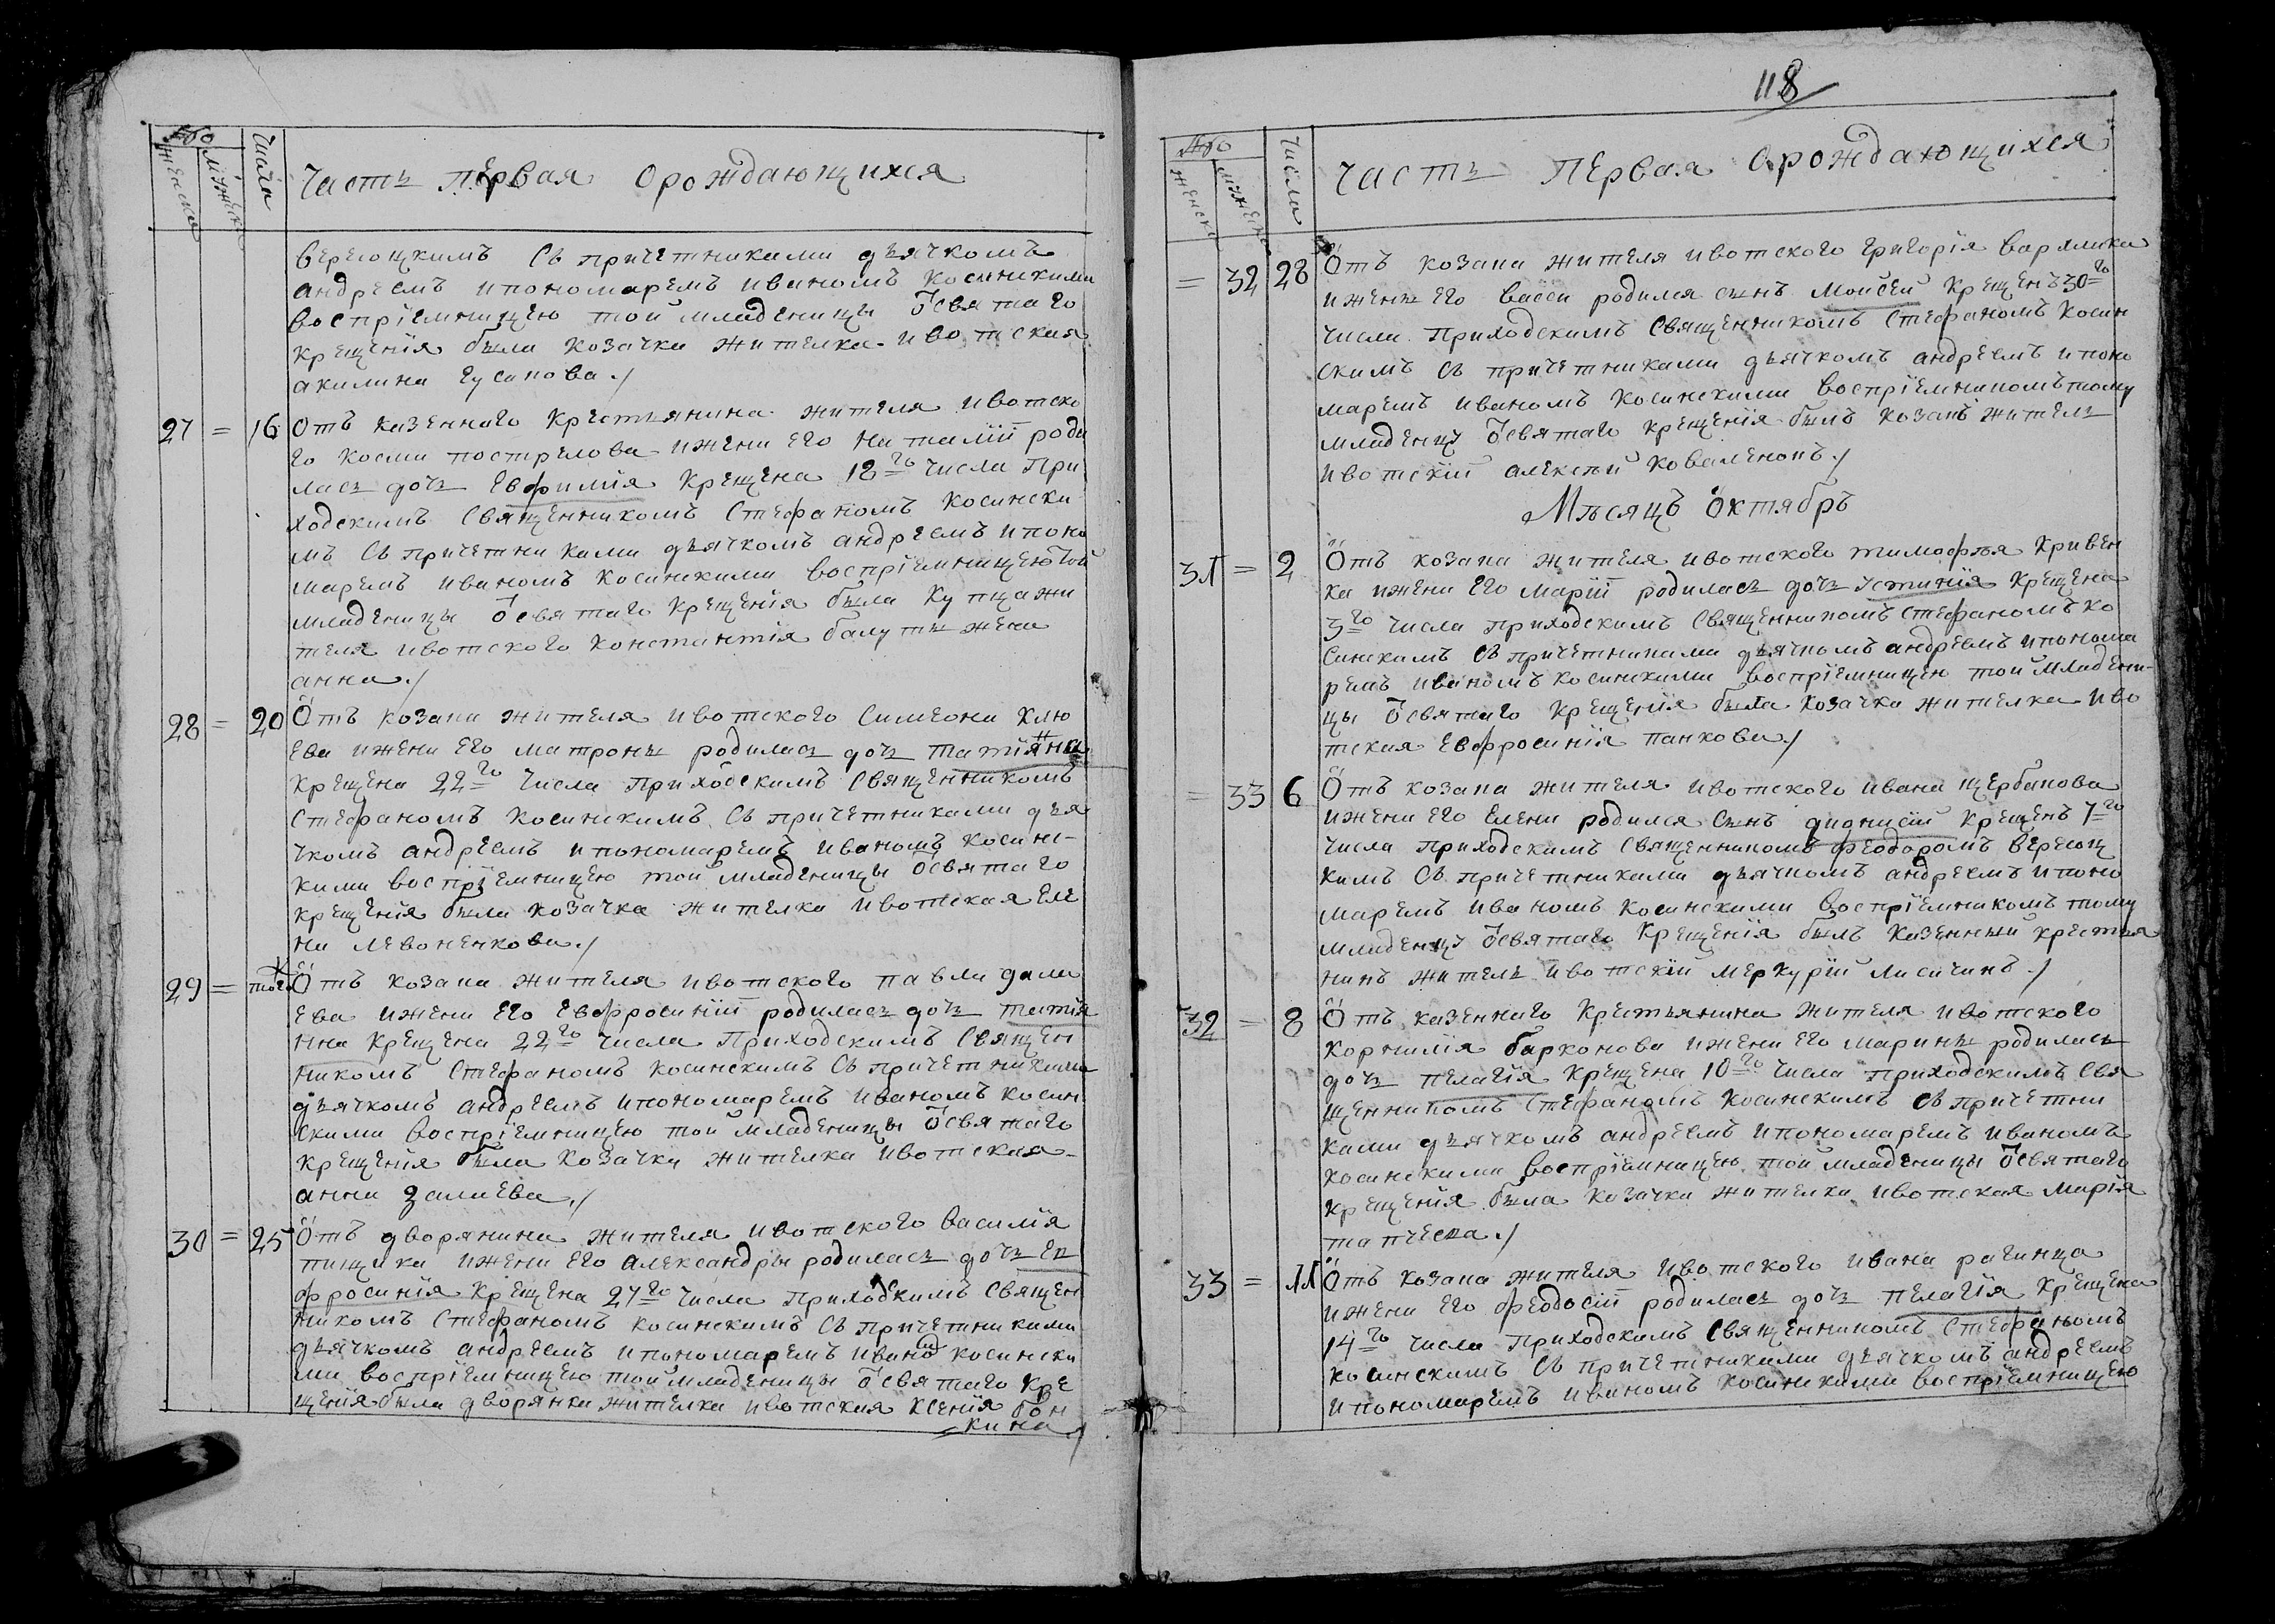 №о Числа
женска мужеска
Часть первая орождающихся
верещкимъ Съ причетниками дьячкомъ
андреемъ ипономаремъ иваномъ косинскими
воспрiемницею той младеницы ѿсвятаго
крещенiя была козачка жителка ивотская
акилина гусакова
27 = 16 Отъ казенного крестьянина жителя ивотско
го космы пострелова ижены его наталiи роди
лась дочь евфимiя крещена 18го числа При
ходскимъ Священникомъ Стефаномъ косински
мъ Съ причетниками дьячкомъ андреемъ ипоно
маремъ иваномъ косинскими воспрiемницею той
младеницы ѿсвятаго крещенiя была купца жи
теля ивотского константiя балуты жена
анна
28 = 20 Ѿтъ козака жителя ивотского Симеона клю
ева ижены его матроны родилась дочь татiянна
крещена 22го числа приходскимъ Священникомъ
Стефаномъ косинскимъ Съ причетниками дья
чкомъ андреемъ ипономаремъ иваномъ косинс-
кими воспрiемницею той младеницы ѿсвятаго
крещенiя была козачка жителка ивотская еле
на левоненкова
29 = того Ѿтъ козака жителя ивотского павла
ева ижены его евфросинiи родилась дочь татiя
нна крещена 22го числа Приходскимъ Священ
никомъ Стефаномъ косинскимъ Съ причетниками
дьячкомъ андреемъ ипономаремъ иваномъ косин
скими воспрiемницею той младеницы ѿсвятаго
крещенiя была козачка жителка ивотская
анна
30 = 25 Ѿтъ дворянина жителя ивотского василiя
пищика ижены его александры родилась дочь ев
фросинiя крещена 27го числа приходскимъ Священ
никомъ Стефаномъ косинскимъ Съ причетниками
дьячкомъ андреемъ ипономаремъ иваномъ косински
ми воспрiемницею той младеницы ѿсвятаго кре
щенiя была дворянка жителка ивотская ксенiя
кина
118
№о Числа
женска мужеска
Часть Первая Орождающихся
= 32 28 Ѿтъ козака жителя ивотского григорiя варялика
ижены его вассы родился сынъ моисей крещенъ 30го
числа Приходскимъ Священникомъ Стефаномъ Косин
скимъ Съ причетниками дьячкомъ андреемъ ипоно
маремъ иваномъ косинскими воспрiемникомъ тому
младенцу ѿсвятаго крещенiя былъ козакъ житель
ивотскiй алексѣй коваленокъ
Мѣсяцъ ѿктябръ
31 = 2 Ѿтъ козака жителя ивотского тимофѣя кривен
ка ижены его марiи родилась дочь устинiя крещена
3го числа приходскимъ Священникомъ стефаномъ ко
синскимъ съ причетниками дьячкомъ андреемъ ипонома
ремъ иваномъ косинскими воспрiемницею той младени-
цы ѿсвятаго крещенiя была козачка жителка иво
тская евфросинiя панкова
= 33 6 Ѿтъ козака жителя ивотского ивана щербакова
ижены его елены родился сынъ дионисiй крещенъ 7го
числа приходскимъ священникомъ феодоромъ верещ
кимъ Съ причетниками дьячкомъ андреемъ ипоно
маремъ иваномъ косинскими воспрiемникомъ тому
младенцу ѿсвятаго крещенiя былъ казенный крестья
нинъ житель ивотскiй меркурiй лисичинъ
32 = 8 Ѿтъ казенного крестьянина жителя ивотского
корнилiя барконова ижены его марины родилась
дочь пелагiя крещена 10го числа приходскимъ свя
щенникомъ стефаномъ косинскимъ съ причетни
ками дьячкомъ андреемъ ипономаремъ иваномъ
косинскими воспрiемницею той младеницы ѿсвятаго
крещенiя была козачка жителка ивотская марiя

33 = 11 Ѿтъ козака жителя ивотского ивана рагинца
ижены его феодосiи родилась дочь пелагiя крещена
14го числа приходскимъ священникомъ стефаномъ
косинскимъ съ причетниками дьячкомъ андреемъ
ипономаремъ иваномъ косинскими воспрiемницею